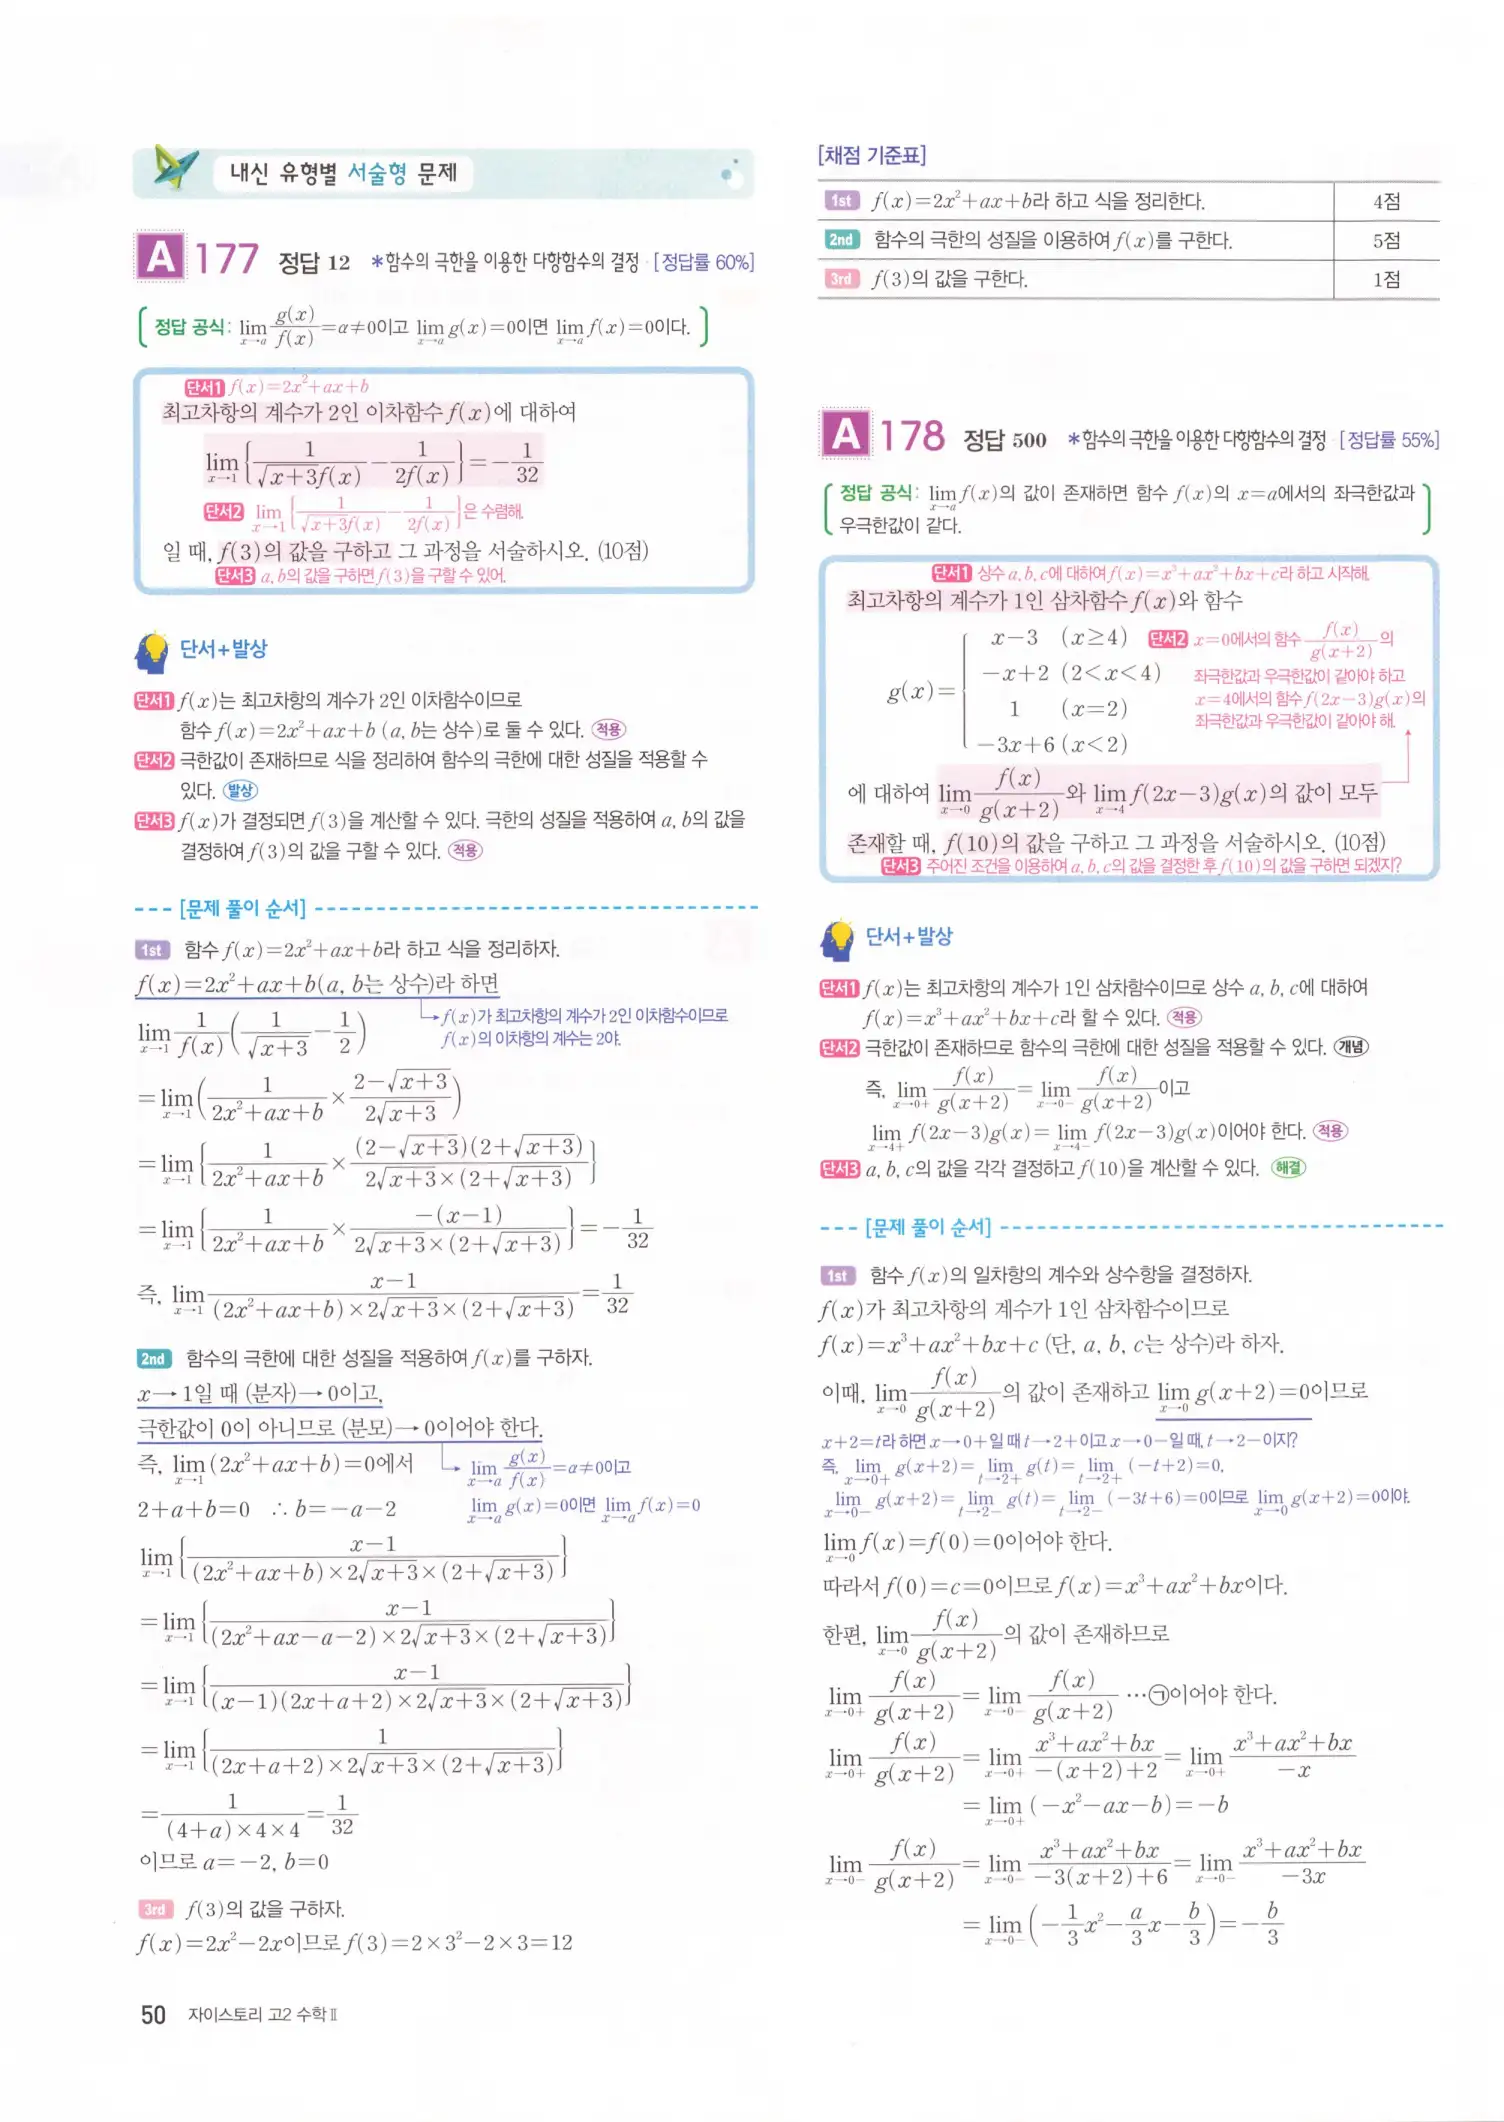 내신 유형별 서술형 문제
A 177 정답 12 *함수의 극한을 이용한 다항함수의 결정 [정답률 60%]
정답 공식: lim_{x→a} g(x)/f(x)=α≠0이고 lim_{x→a} g(x)=0이면 lim_{x→a} f(x)=0이다.
단서1 f(x)=2x²+ax+b
최고차항의 계수가 2인 이차함수 f(x)에 대하여
lim_{x→1} {1/(√(x+3)f(x)) − 1/(2f(x))} = −1/32
단서2 lim_{x→1} {1/(√(x+3)f(x)) − 1/(2f(x))}은 수렴해.
일 때, f(3)의 값을 구하고 그 과정을 서술하시오. (10점)
단서3 a, b의 값을 구하면 f(3)을 구할 수 있어.
단서+발상
단서1 f(x)는 최고차항의 계수가 2인 이차함수이므로
함수 f(x)=2x²+ax+b (a, b는 상수)로 둘 수 있다. 적용
단서2 극한값이 존재하므로 식을 정리하여 함수의 극한에 대한 성질을 적용할 수
있다. 발상
단서3 f(x)가 결정되면 f(3)을 계산할 수 있다. 극한의 성질을 적용하여 a, b의 값을
결정하여 f(3)의 값을 구할 수 있다. 적용
--- [문제 풀이 순서] ---
1st 함수 f(x)=2x²+ax+b라 하고 식을 정리하자.
f(x)=2x²+ax+b(a, b는 상수)라 하면
→ f(x)가 최고차항의 계수가 2인 이차함수이므로
f(x)의 이차항의 계수는 2야.
lim_{x→1} 1/f(x) (1/√(x+3) − 1/2)
=lim_{x→1} (1/(2x²+ax+b) × (2−√(x+3))/(2√(x+3)))
=lim_{x→1} {1/(2x²+ax+b) × (2−√(x+3))(2+√(x+3))/(2√(x+3)×(2+√(x+3)))}
=lim_{x→1} {1/(2x²+ax+b) × −(x−1)/(2√(x+3)×(2+√(x+3)))} = −1/32
즉, lim_{x→1} (x−1)/((2x²+ax+b)×2√(x+3)×(2+√(x+3))) = 1/32
2nd 함수의 극한에 대한 성질을 적용하여 f(x)를 구하자.
x→1일 때 (분자)→0이고,
극한값이 0이 아니므로 (분모)→0이어야 한다.
즉, lim_{x→1} (2x²+ax+b)=0에서
→ lim_{x→a} g(x)/f(x)=α≠0이고
lim_{x→a} g(x)=0이면 lim_{x→a} f(x)=0
2+a+b=0 ∴ b=−a−2
lim_{x→1} {(x−1)/((2x²+ax+b)×2√(x+3)×(2+√(x+3)))}
=lim_{x→1} {(x−1)/((2x²+ax−a−2)×2√(x+3)×(2+√(x+3)))}
=lim_{x→1} {(x−1)/((x−1)(2x+a+2)×2√(x+3)×(2+√(x+3)))}
=lim_{x→1} {1/((2x+a+2)×2√(x+3)×(2+√(x+3)))}
=1/((4+a)×4×4)=1/32
이므로 a=−2, b=0
3rd f(3)의 값을 구하자.
f(x)=2x²−2x이므로 f(3)=2×3²−2×3=12
50 자이스토리 고2 수학Ⅱ
[채점 기준표]
1st f(x)=2x²+ax+b라 하고 식을 정리한다. 4점
2nd 함수의 극한의 성질을 이용하여 f(x)를 구한다. 5점
3rd f(3)의 값을 구한다. 1점
A 178 정답 500 *함수의 극한을 이용한 다항함수의 결정 [정답률 55%]
정답 공식: lim_{x→a} f(x)의 값이 존재하면 함수 f(x)의 x=a에서의 좌극한값과
우극한값이 같다.
단서1 상수 a, b, c에 대하여 f(x)=x³+ax²+bx+c라 하고 시작해.
최고차항의 계수가 1인 삼차함수 f(x)와 함수
g(x)= { x−3 (x≥4)
−x+2 (2<x<4)
1 (x=2)
−3x+6 (x<2)
단서2 x=0에서의 함수 f(x)/g(x+2)의
좌극한값과 우극한값이 같아야 하고
x=4에서의 함수 f(2x−3)g(x)의
좌극한값과 우극한값이 같아야 해.
에 대하여 lim_{x→0} f(x)/g(x+2)와 lim_{x→4} f(2x−3)g(x)의 값이 모두
존재할 때, f(10)의 값을 구하고 그 과정을 서술하시오. (10점)
단서3 주어진 조건을 이용하여 a, b, c의 값을 결정한 후 f(10)의 값을 구하면 되겠지?
단서+발상
단서1 f(x)는 최고차항의 계수가 1인 삼차함수이므로 상수 a, b, c에 대하여
f(x)=x³+ax²+bx+c라 할 수 있다. 적용
단서2 극한값이 존재하므로 함수의 극한에 대한 성질을 적용할 수 있다. 개념
즉, lim_{x→0+} f(x)/g(x+2) = lim_{x→0−} f(x)/g(x+2)이고
lim_{x→4+} f(2x−3)g(x)= lim_{x→4−} f(2x−3)g(x)이어야 한다. 적용
단서3 a, b, c의 값을 각각 결정하고 f(10)을 계산할 수 있다. 해결
--- [문제 풀이 순서] ---
1st 함수 f(x)의 일차항의 계수와 상수항을 결정하자.
f(x)가 최고차항의 계수가 1인 삼차함수이므로
f(x)=x³+ax²+bx+c (단, a, b, c는 상수)라 하자.
이때, lim_{x→0} f(x)/g(x+2)의 값이 존재하고 lim_{x→0} g(x+2)=0이므로
x+2=t라 하면 x→0+일 때 t→2+이고 x→0−일 때, t→2−이지?
즉, lim_{x→0+} g(x+2)= lim_{t→2+} g(t)= lim_{t→2+} (−t+2)=0,
lim_{x→0−} g(x+2)= lim_{t→2−} g(t)= lim_{t→2−} (−3t+6)=0이므로 lim_{x→0} g(x+2)=0이야.
lim_{x→0} f(x)=f(0)=0이어야 한다.
따라서 f(0)=c=0이므로 f(x)=x³+ax²+bx이다.
한편, lim_{x→0} f(x)/g(x+2)의 값이 존재하므로
lim_{x→0+} f(x)/g(x+2) = lim_{x→0−} f(x)/g(x+2) …㉠이어야 한다.
lim_{x→0+} f(x)/g(x+2) = lim_{x→0+} (x³+ax²+bx)/(−(x+2)+2) = lim_{x→0+} (x³+ax²+bx)/(−x)
= lim_{x→0+} (−x²−ax−b)=−b
lim_{x→0−} f(x)/g(x+2) = lim_{x→0−} (x³+ax²+bx)/(−3(x+2)+6) = lim_{x→0−} (x³+ax²+bx)/(−3x)
= lim_{x→0−} (−1/3 x² − a/3 x − b/3) = −b/3